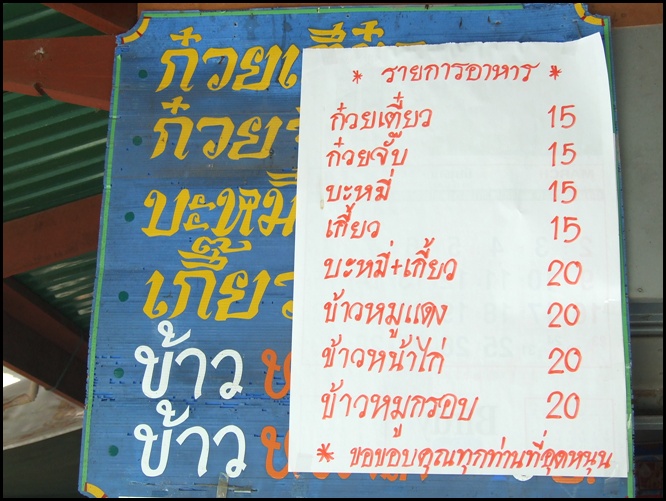 * รายการอาหาร *
ก๋วยเตี๋ยว 15
ก๋วยจั๊บ 15
บะหมี่ 15
เกี๊ยว 15
บะหมี่+เกี๊ยว 20
ข้าวหมูแดง 20
ข้าวหน้าไก่ 20
ข้าวหมูกรอบ 20
* ขอขอบคุณทุกท่านที่อุดหนุน
ก๋วยเตี๋ยว
ก๋วย
บะหมี่
เกี๊ยว
ข้าว
ข้าว